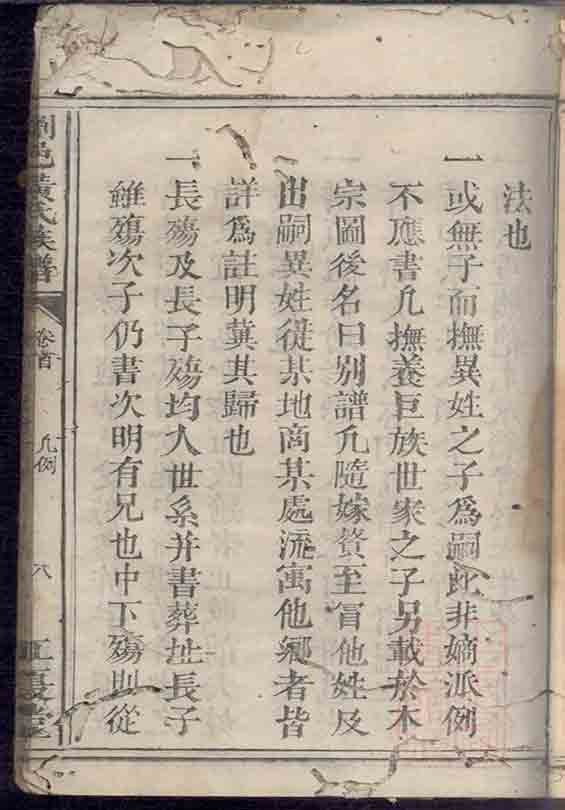 法也
一或無子而撫異姓之子爲嗣此非嫡派例
不應書凡撫養巨族世家之子另載於本
宗圖後名曰別譜凡隨嫁贅至冒他姓及
出嗣異姓從某地商某處流寓他鄉者皆
詳爲註明冀其歸也
一長殤及長子殤均入世系并書葬址長子
雖殤次子仍書次明有兄也中下殤則從
瀏邑黃氏族譜
卷首
凡例
八
江夏堂